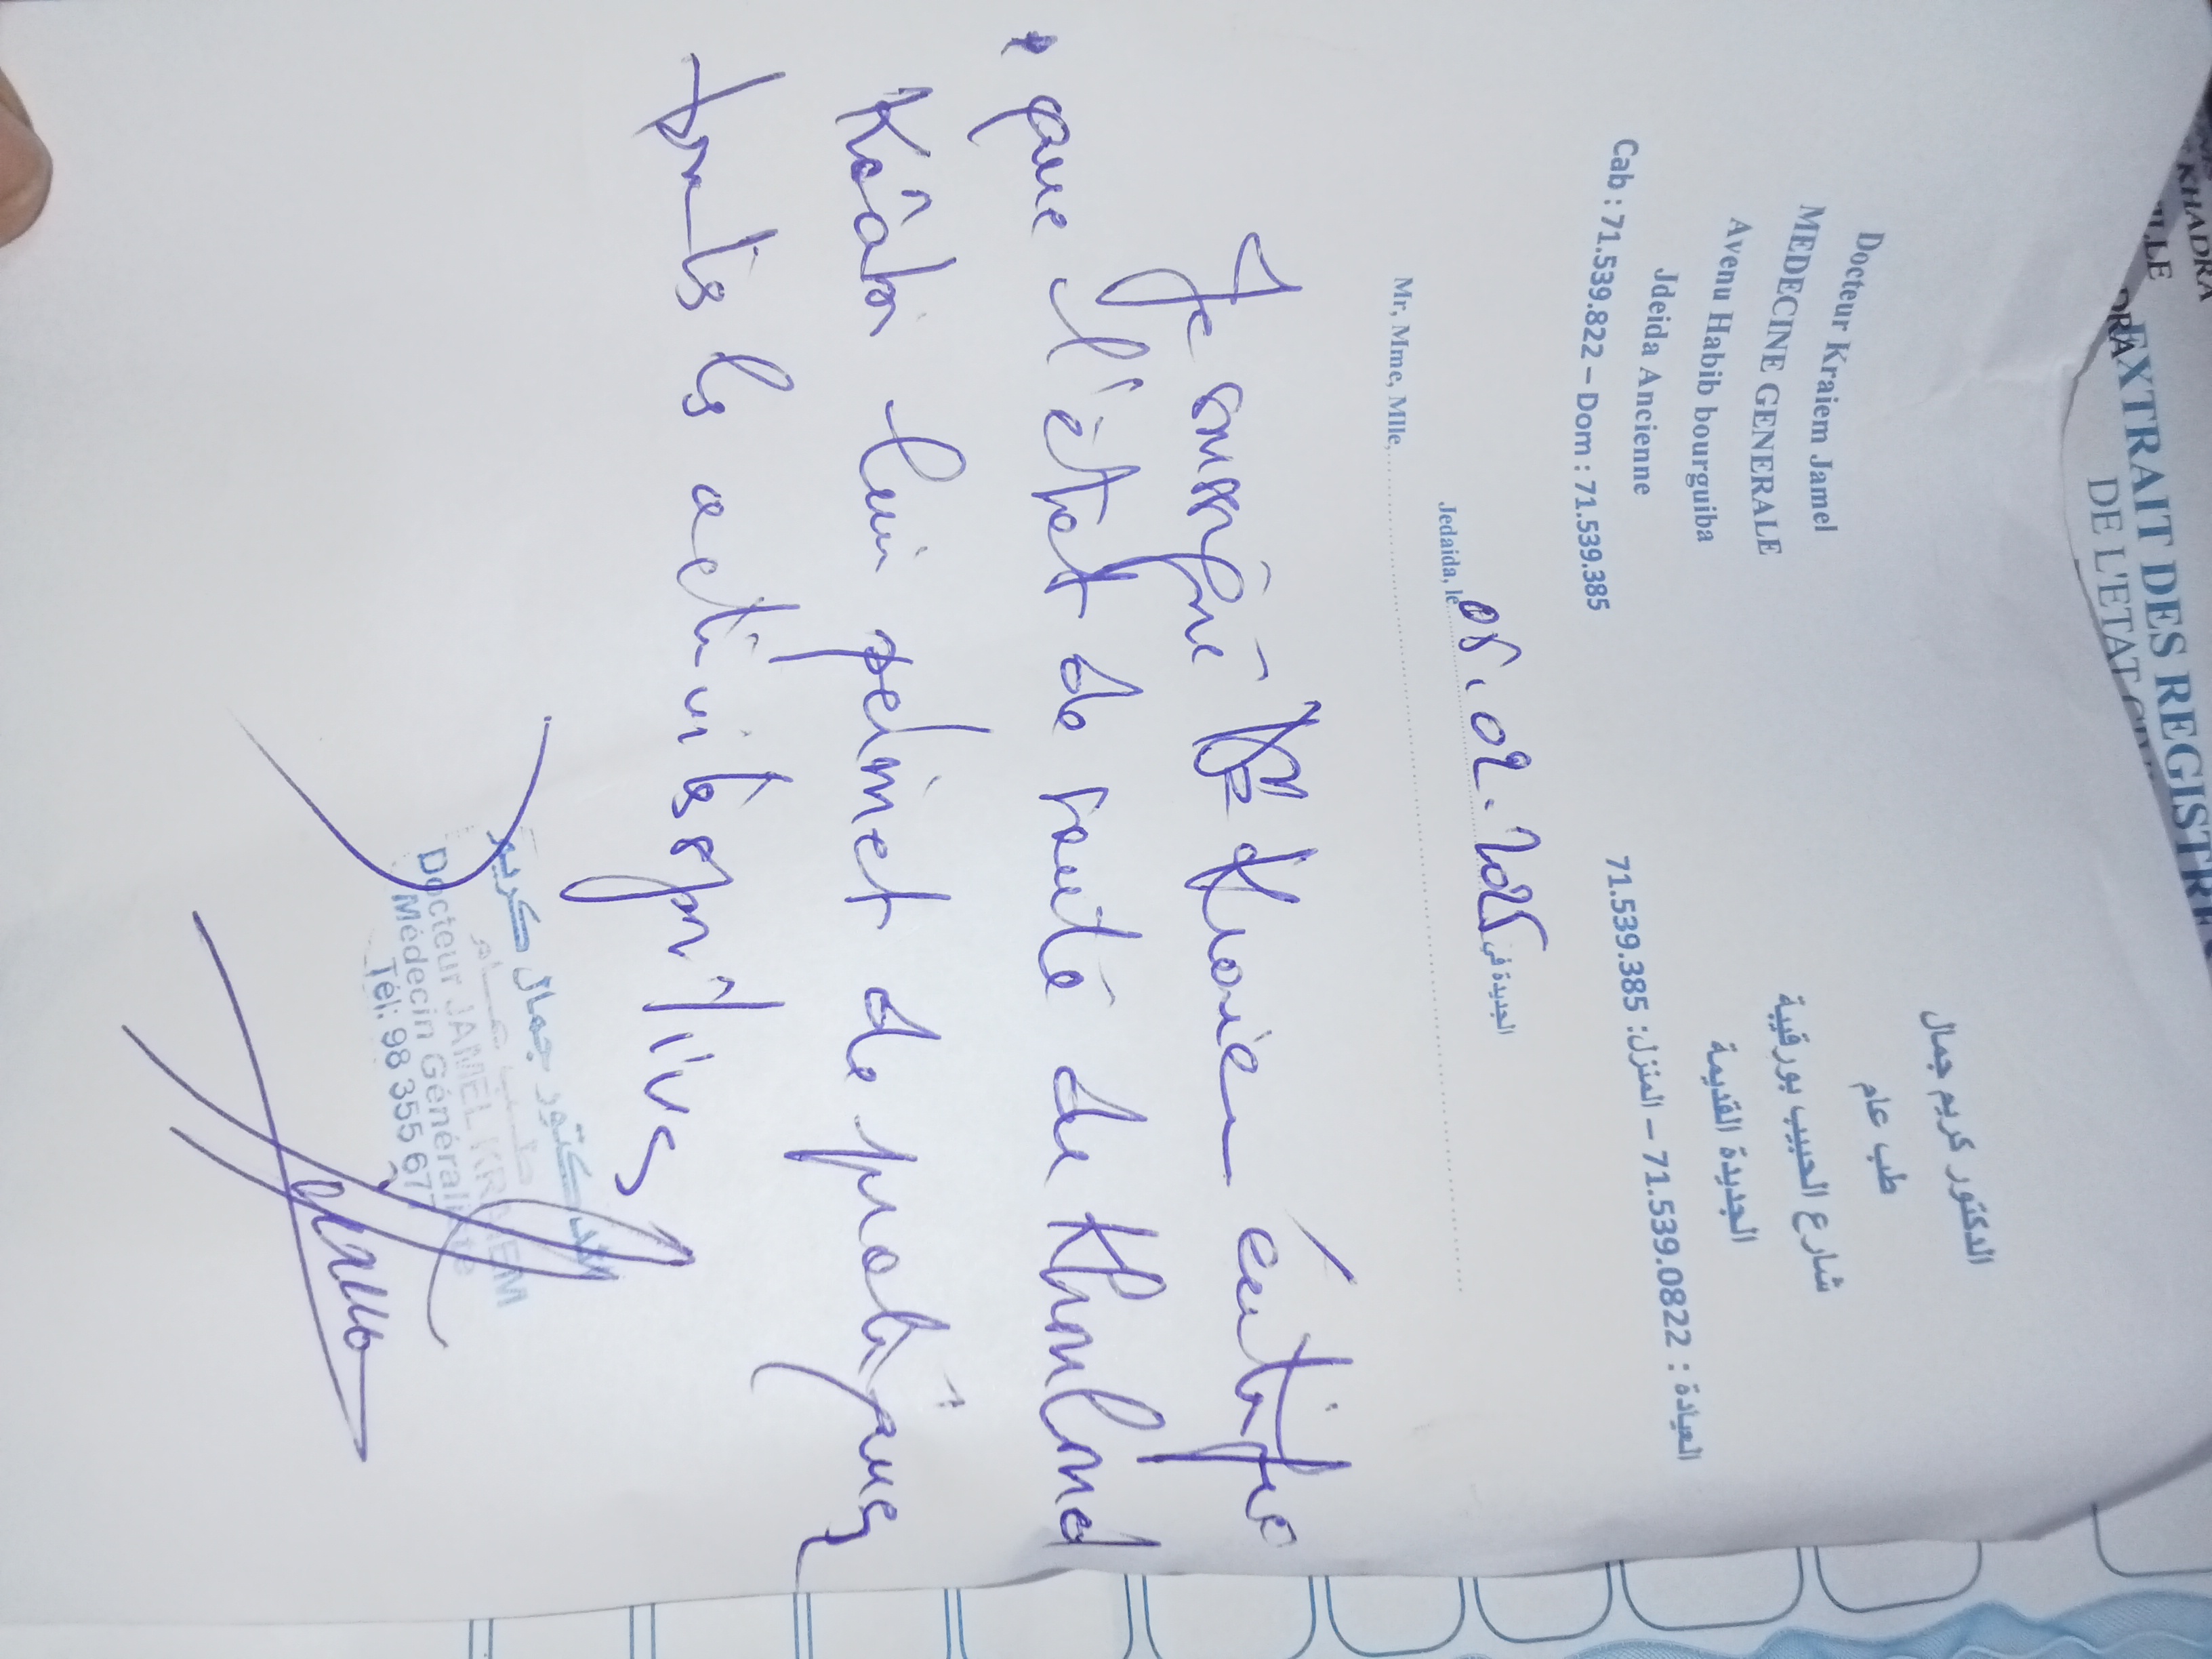 EXTRAIT DES REGISTRE
DE L'ETAT
KHADRA
Docteur Kraiem Jamel
MEDECINE GENERALE
Avenu Habib bourguiba
Jdeida Ancienne
Cab : 71.539.822 – Dom : 71.539.385
الدكتور كريم جمال
طب عام
شارع الحبيب بورقيبة
الجديدة القديمة
العيادة : 71.539.0822 – المنزل: 71.539.385
Jedaida, le 05.02.2025 الجديدة في
Mr, Mme, Mlle,
Je soussigné Dr Kraiem certifie
que l'état de santé de
Kâabi lui permet de pratiquer
toutes les activités sportives
الدكتور جمال كريم
Docteur JAMEL KRAIEM
Médecin Généraliste
Tél: 98 355 67